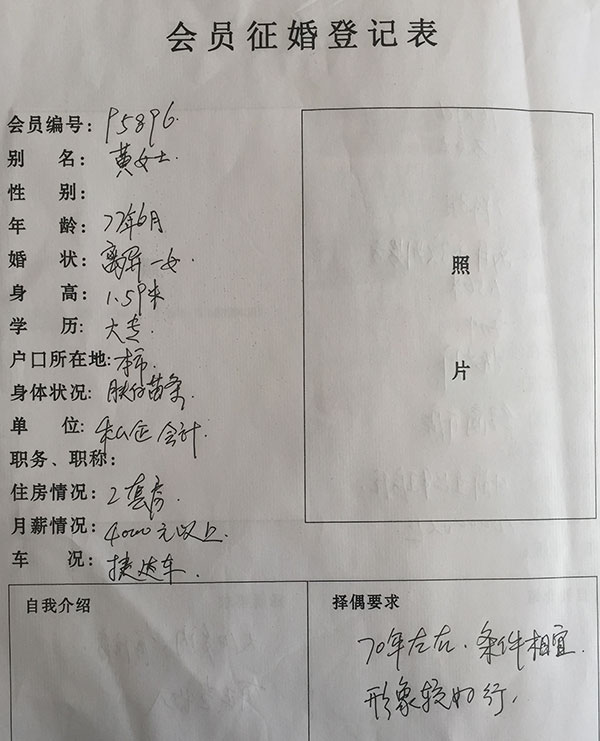 会员征婚登记表
会员编号：P5896.
别 名：黄女士.
性 别：
年 龄：77年6月
婚 状：离异一女.
身 高：1.59米
学 历：大专.
户口所在地：本市.
身体状况：苗条.
单 位：私企会计.
职务、职称：
住房情况：2套房.
月薪情况：4000元以上.
车 况：捷达车.
照
片
自我介绍
择偶要求
70年左右、条件相宜.
形象较好行,